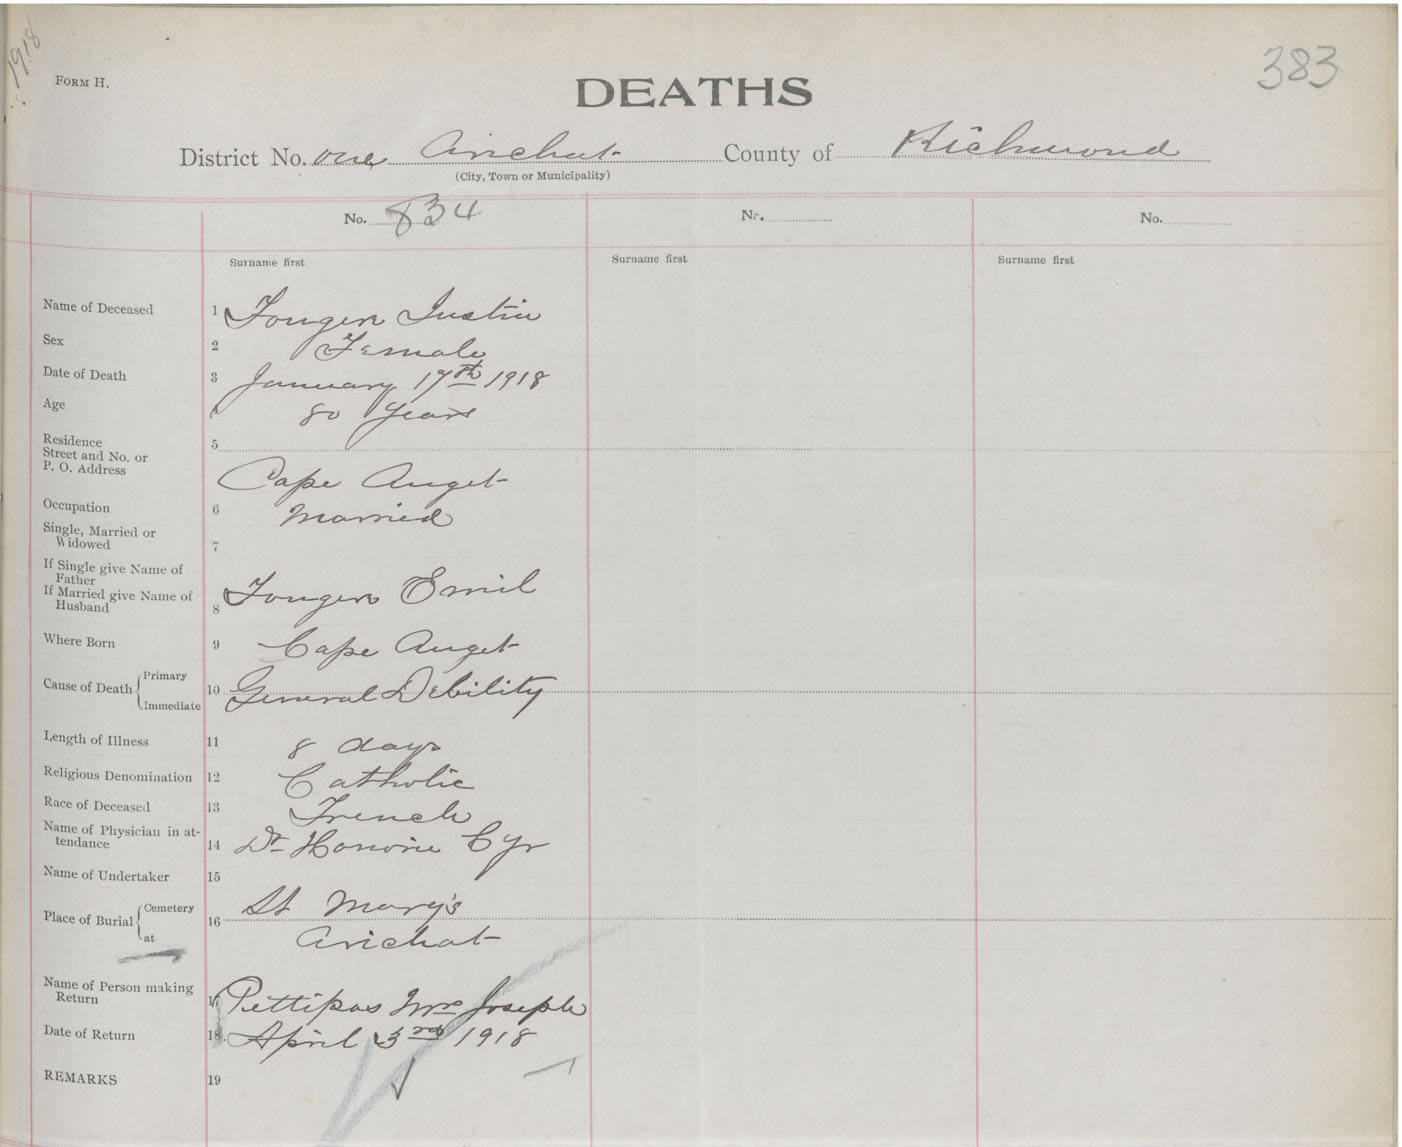 1918
383
FORM H.
DEATHS
District No. one Arichat County of Richmond
(City, Town or Municipality)
No. 834 No. No.
Surname first Surname first Surname first
Name of Deceased 1 Fougere Justin
Sex 2 Female
Date of Death 3 January 17th 1918
Age 80 years
Residence 5
Street and No. or
P. O. Address Cape Auget
Occupation 6 Married
Single, Married or
Widowed 7
If Single give Name of
Father
If Married give Name of
Husband 8 Fougere Emil
Where Born 9 Cape Auget
Cause of Death Primary
Immediate 10 General Debility
Length of Illness 11 8 days
Religious Denomination 12 Catholic
Race of Deceased 13 French
Name of Physician in at-
tendance 14 Dr Honorie Cyr
Name of Undertaker 15
Place of Burial Cemetery 16 St Mary's
at Arichat
Name of Person making
Return 17 Pettipas Mrs Joseph
Date of Return 18. April 3rd 1918
REMARKS 19